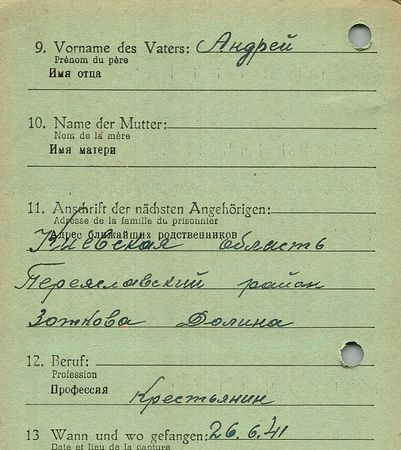 9. Vorname des Vaters: Андрей
Prénom du père
Имя отца
10. Name der Mutter:
Nom de la mère
Имя матери
11. Anschrift der nächsten Angehörigen:
Adresse de la famille du prisonnier
Адрес ближайших родственников
Киевская область
Переяславский район
Зоткова Долина
12. Beruf:
Profession
Профессия
Крестьянин
13 Wann und wo gefangen: 26.6.41
Date et lieu de la capture